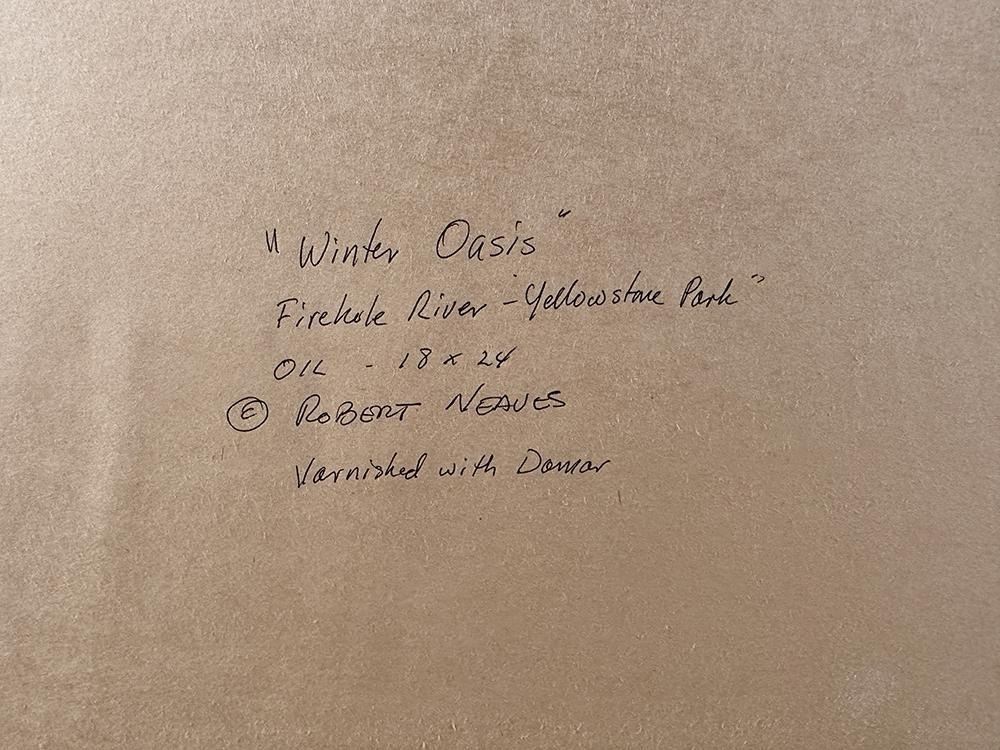 "Winter Oasis"
Firehole River - Yellowstone Park"
OIL - 18 x 24
© ROBERT NEAVES
Varnished with Damar